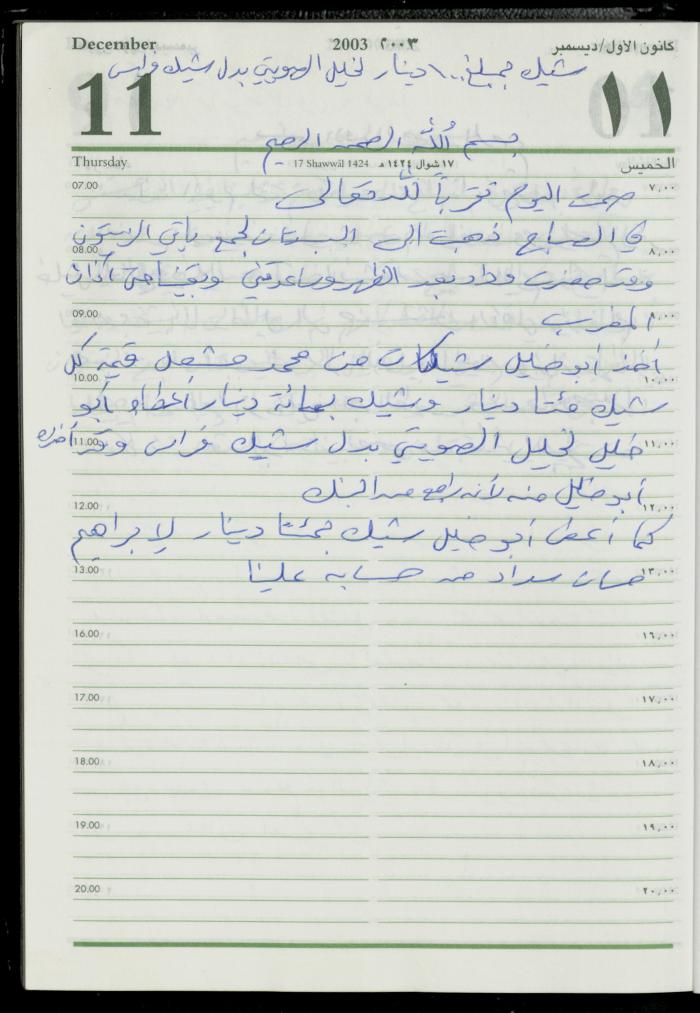 December 2003 ٢٠٠٣ كانون الاول/ديسمبر
شيك بمبلغ ١٠٠ دينار لخليل الصويتي بدل شيك فراس
11 ١١
بسم الله الرحمن الرحيم
Thursday 17 Shawwāl 1424 ١٧ شوال ١٤٢٤ هـ الخميس
07.00 صمت اليوم تقرباً لله تعالى ٧,٠٠
في الصباح ذهبت الى البستان لجمع باقي الزيتون
08.00 ٨,٠٠
وقد حضرت وداد بعد الظهر وساعدتني وبقينا حتى آذان
09.00 المغرب ٩,٠٠
أخذ أبو خليل شيكات من محمد مشعل قيمة كل
10.00 ١٠,٠٠
شيك مئتا دينار وشيك بمائة دينار أعطاه أبو
11.00 خليل لخليل الصويتي بدل شيك فراس وقد أخذه ١١,٠٠
أبو خليل منه لأنه راجع من البنك
12.00 ١٢,٠٠
كما أعطى أبو خليل شيك بمئتا دينار لإبراهيم
13.00 حسان سداد من حسابه علينا ١٣,٠٠
16.00 ١٦,٠٠
17.00 ١٧,٠٠
18.00 ١٨,٠٠
19.00 ١٩,٠٠
20.00 ٢٠,٠٠